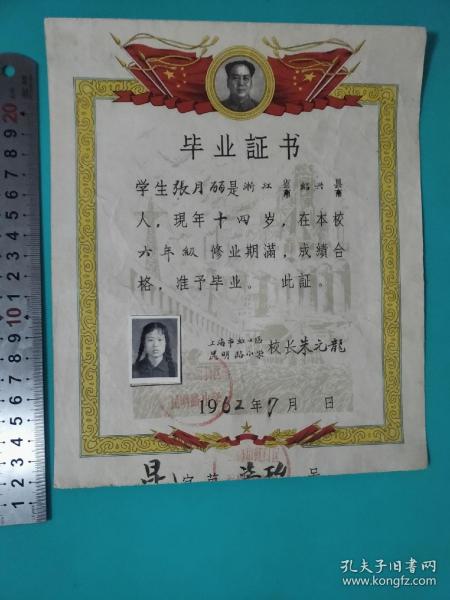 毕业証书
学生張月丽是浙江省市紹兴县市
人，現年十四岁，在本校
六年級修业期滿，成績合
格，准予毕业。此証。
上海市虹口区
昆明路小学
校长朱元龍
1962年7月 日
昆字第 号
孔夫子旧书网
www.kongfz.com
20
10